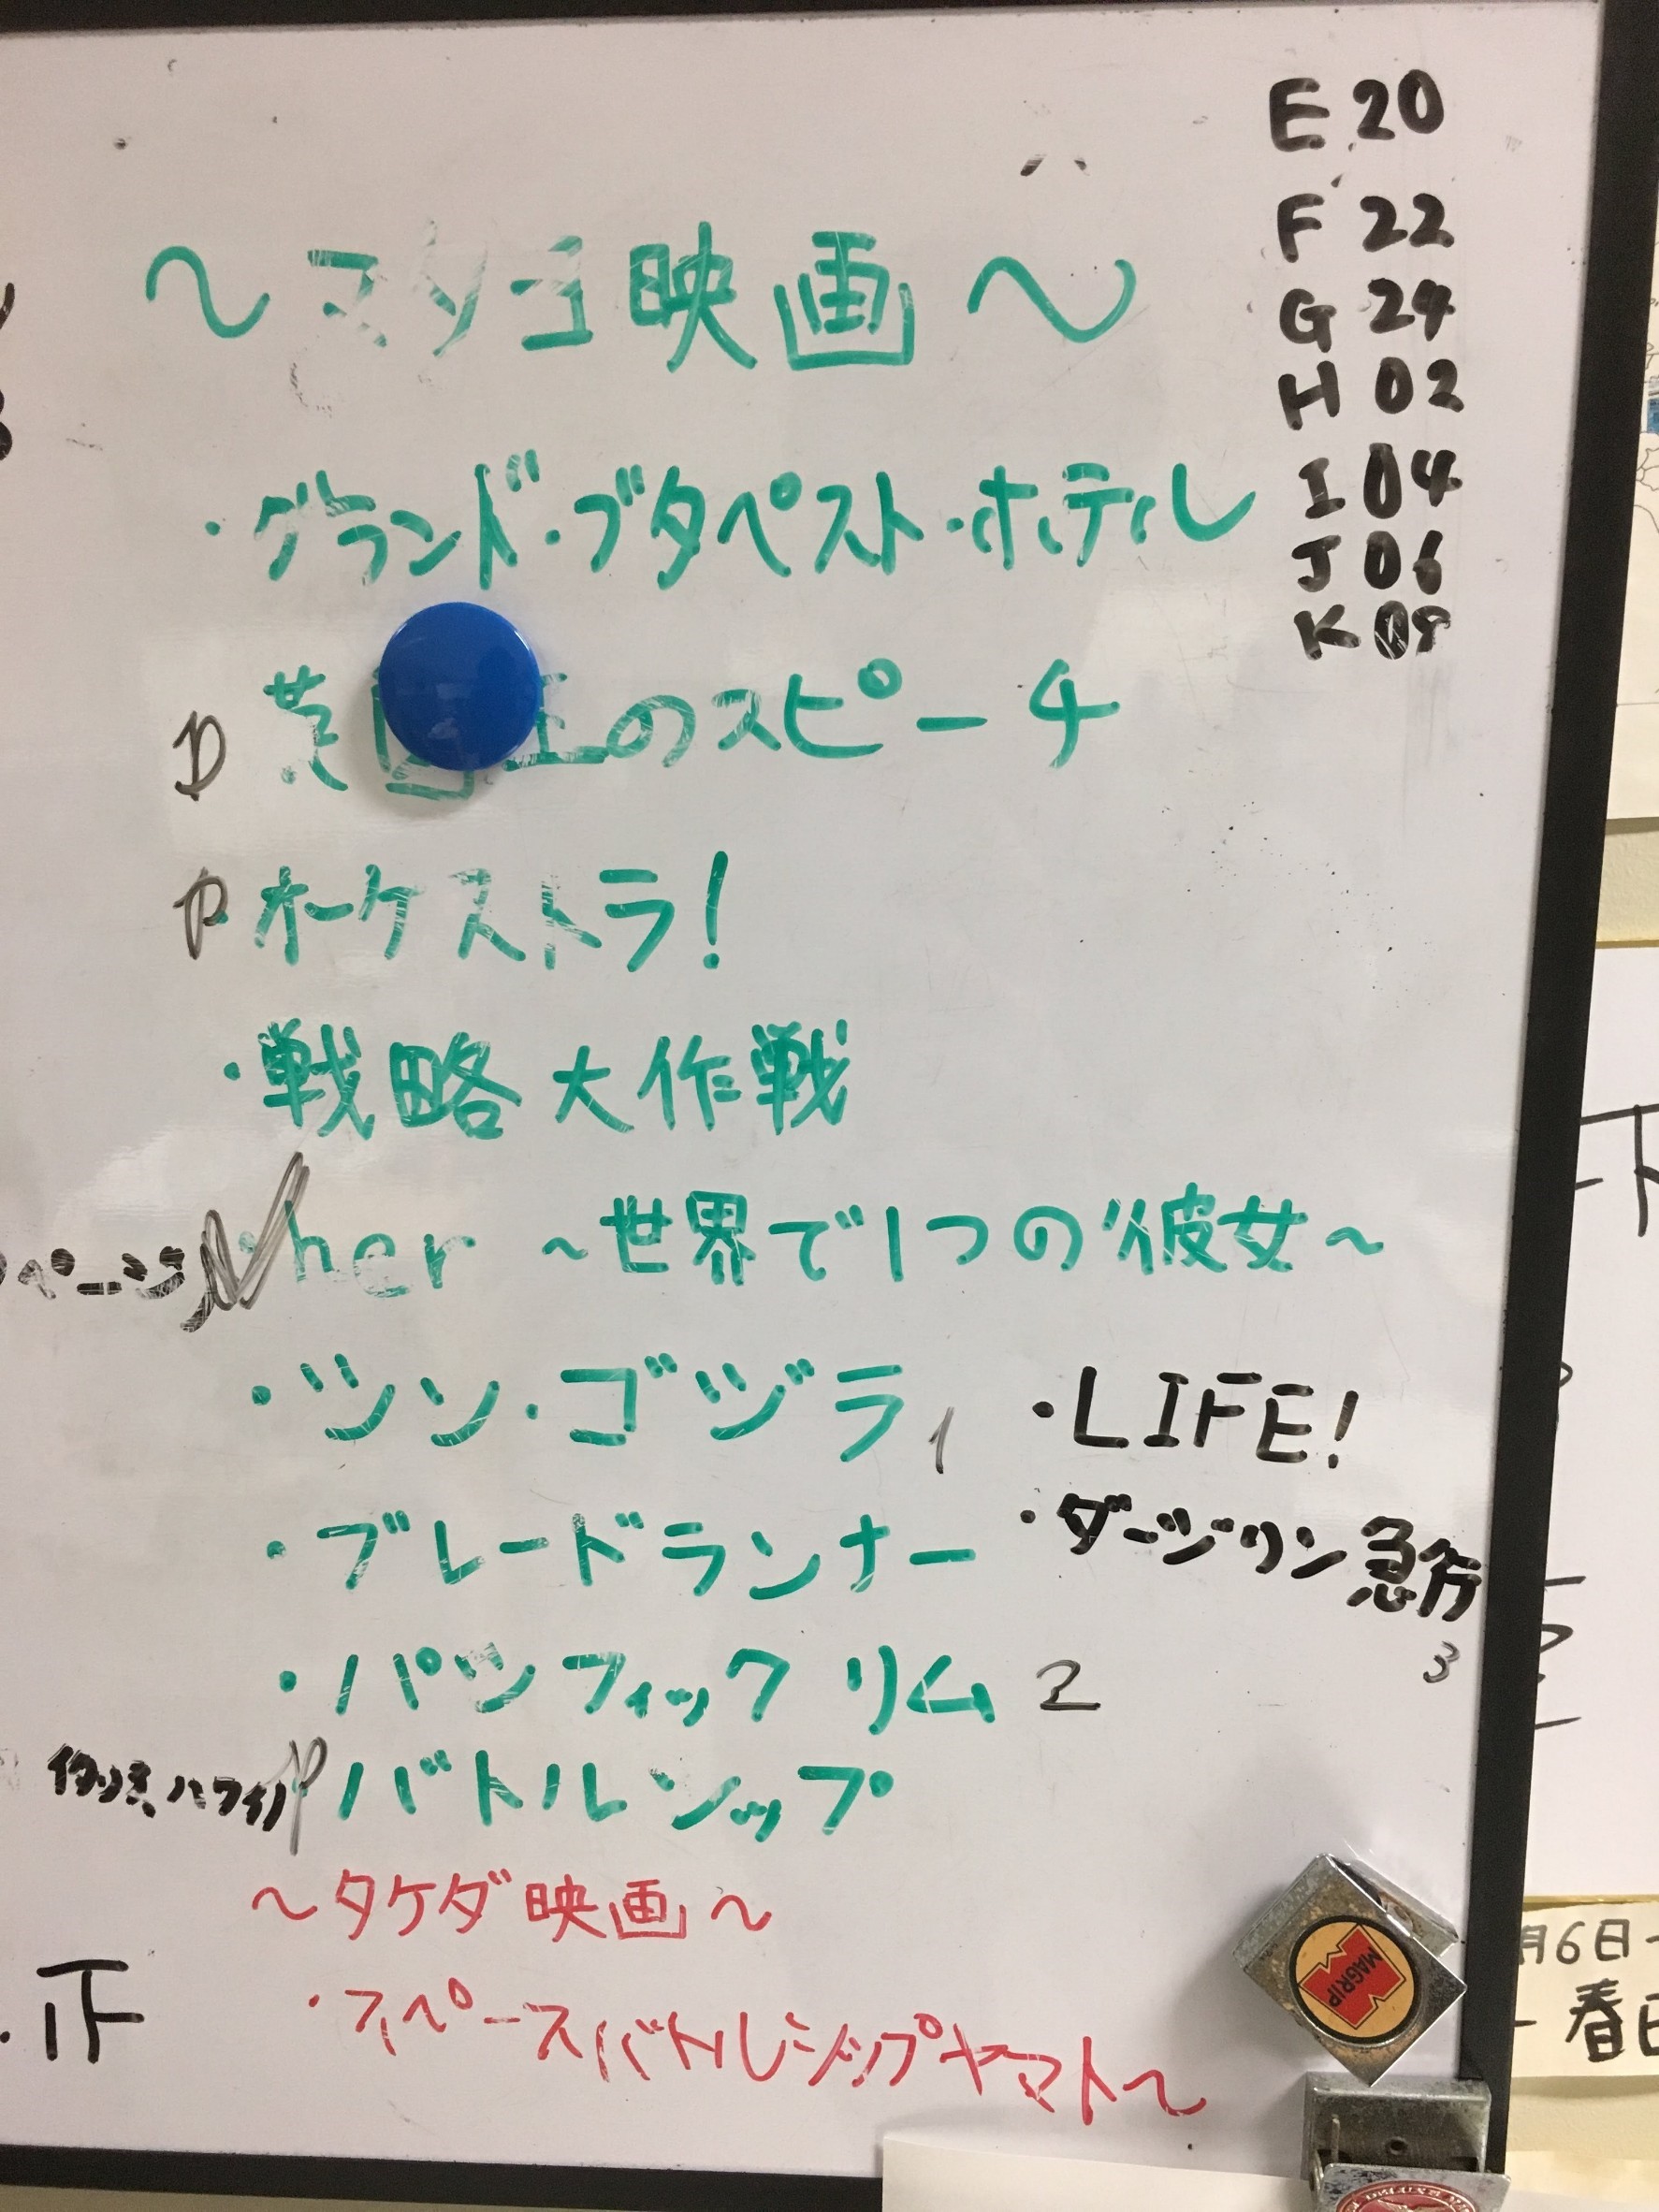 E 20
F 22
G 24
H 02
I 04
J 06
K 09
〜マダヨ映画〜
・グランド・ブタペスト・ホテル
D 英国王のスピーチ
P オーケストラ!
・戦略大作戦
・her 〜世界で1つの彼女〜
・シン・ゴジラ 1
・LIFE!
・ブレードランナー
・ダージリン急行
3
・パシフィック リム 2
バトルシップ
〜タケダ映画〜
・スペースバトルシップヤマト〜
正
MAGRIP
月6日
春日